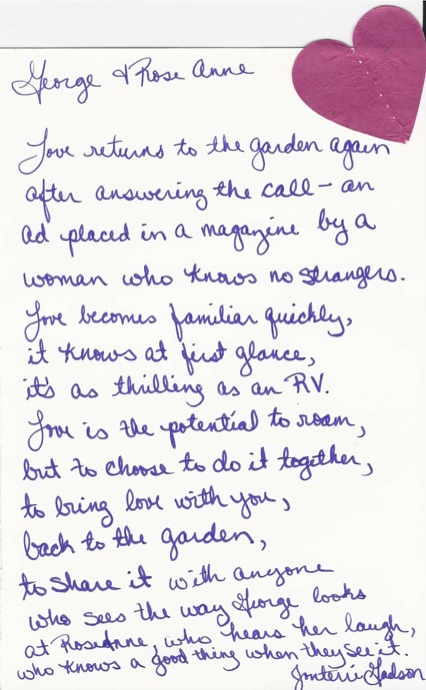 George & Rose Anne
Love returns to the garden again
after answering the call – an
ad placed in a magazine by a
woman who knows no strangers.
Love becomes familiar quickly,
it knows at first glance,
it's as thrilling as an RV.
Love is the potential to roam,
but to choose to do it together,
to bring love with you,
back to the garden,
to share it with anyone
who sees the way George looks
at RoseAnne, who hears her laugh,
who knows a good thing when they see it.
Jonterri Gadson